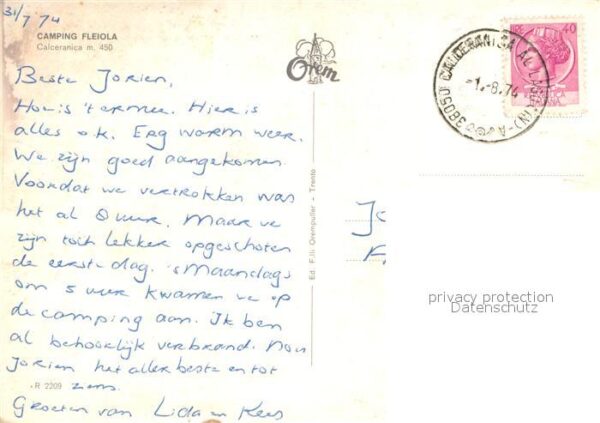 31/7 74
CAMPING FLEIOLA
Calceranica m. 450
Beste Jorien,
Hoe is 't ermee. Hier is
alles o.k. Erg warm weer.
We zijn goed aangekomen.
Voordat we vertrokken was
het al 8 uur. Maar we
zijn toch lekker opgeschoten
de eerste dag. 's Maandags
om 5 uur kwamen we op
de camping aan. Ik ben
al behoorlijk verbrand. Nou
Jorien het allerbeste en tot
ziens.
Groeten van Lida en Kees
R 2209
Orem
Ed. F.lli Orempuller - Trento
38050 CALCERANICA AL LAGO (TN)
-1.-8.74
40
privacy protection
Datenschutz